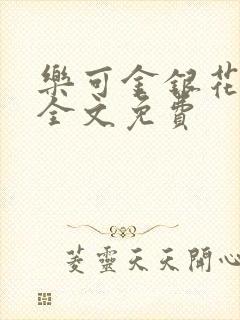 樂可金銀花
全文免費
菱靈天天開心